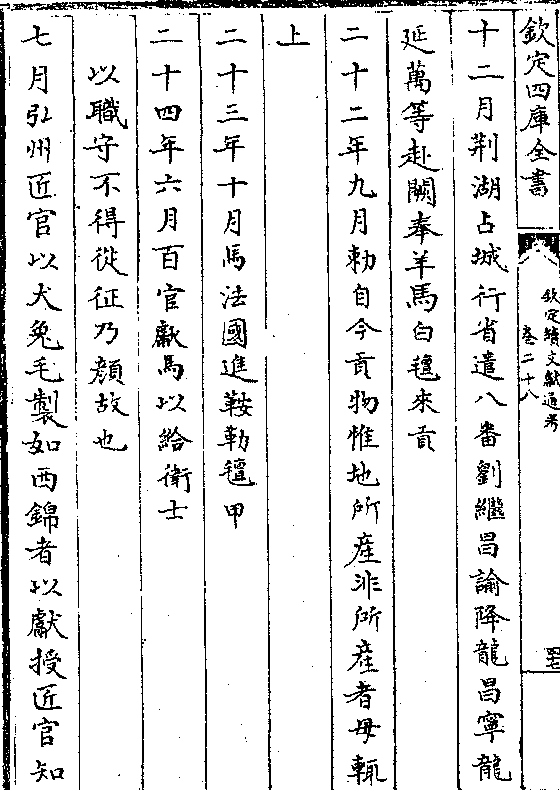 欽定四庫全書
欽定續文獻通考
卷二十八
罕
十二月荆湖占城行省遣八番劉繼昌諭降龍昌寧龍
延萬等赴闕奉羊馬白氊來貢
二十二年九月勅自今貢物惟地所産非所産者毋輒
上
二十三年十月馬法國進鞍勒氊甲
二十四年六月百官獻馬以給衛士
以職守不得從征乃顔故也
七月弘州匠官以犬兔毛製如西錦者以獻授匠官知